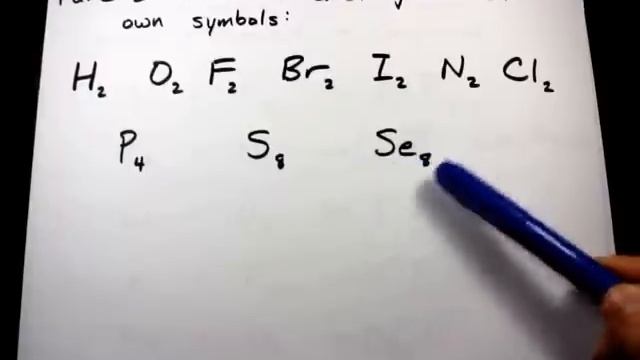 own symbols:
H₂ O₂ F₂ Br₂ I₂ N₂ Cl₂
P₄ S₈ Se₈